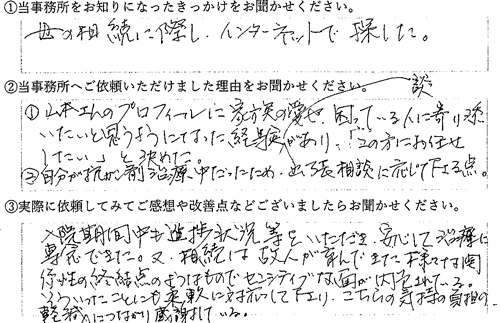 ①当事務所をお知りになったきっかけをお聞かせください。
母の相続に際し、インターネットで探した。
②当事務所へご依頼いただけました理由をお聞かせください。
談
①山本さんのプロフィールに家族の愛や困っている人に寄り添
いたいと思うようになった経験があり、「この方にお任せ
したい」と決めた。
②自分が抗がん剤治療中だったため、出張相談に応じて下さる点。
③実際に依頼してみてご感想や改善点などございましたらお聞かせください。
入院期間中も進捗状況等をいただき、安心して治療に
専念できました。又、相続は故人が育んできた様々な関
係性の終結点のようなものでセンシティブな面が内包されている。
そういったことにも柔軟に対応して下さり、こちらの気持の負担の
軽減につながり感謝している。